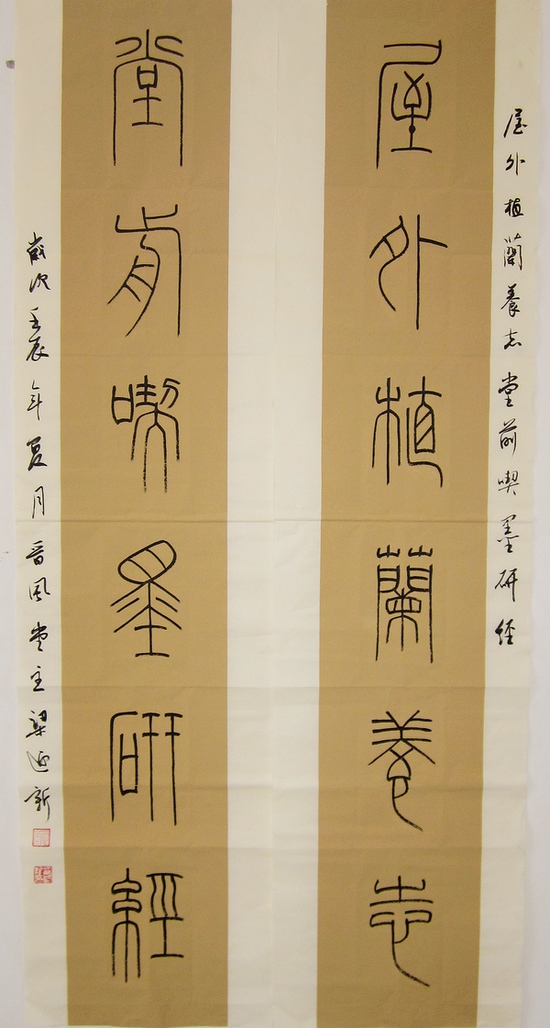 屋外植蘭養志堂前喫墨研經
屋外植蘭養志
堂前喫墨研經
歲次壬辰年夏月晋風堂主梁延新